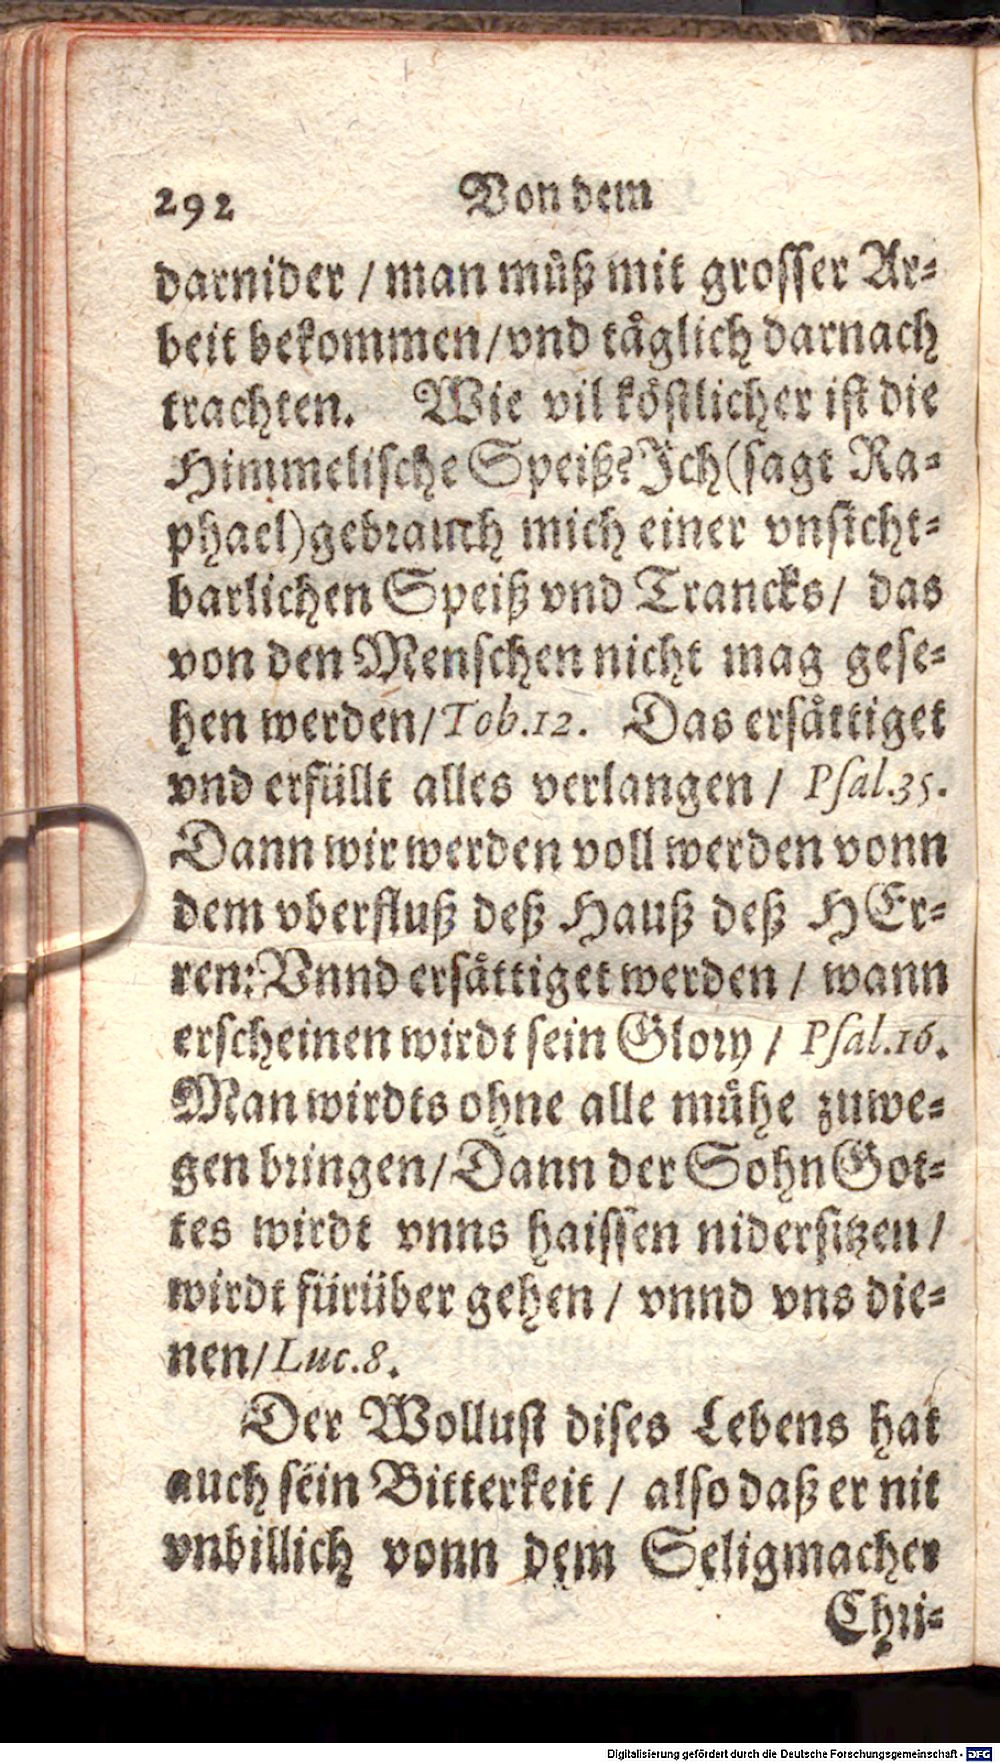 292 Von dem
darnider / man můß mit grosser Ar-
beit bekommen/vnd tåglich darnach
trachten. Wie vil köstlicher ist die
Himmelische Speiß? Jch (sagt Ra-
phael) gebrauch mich einer vnsicht-
barlichen Speiß vnd Trancks / das
von den Menschen nicht mag gese-
hen werden/Tob.12. Das ersåttiget
vnd erfüllt alles verlangen / Psal.35.
Dann wir werden voll werden vonn
dem vberfluß deß Hauß deß HEr-
ren: Vnnd ersåttiget werden / wann
erscheinen wirdt sein Glory / Psal.16.
Man wirdts ohne alle můhe zuwe-
gen bringen/Dann der Sohn Got-
tes wirdt vnns haissen nidersitzen /
wirdt fürüber gehen / vnnd vns die-
nen/Luc.8.
Der Wollust dises Lebens hat
auch sein Bitterkeit / also daß er nit
vnbillich vonn dem Seligmacher
Chri-
Digitalisierung gefördert durch die Deutsche Forschungsgemeinschaft - DFG